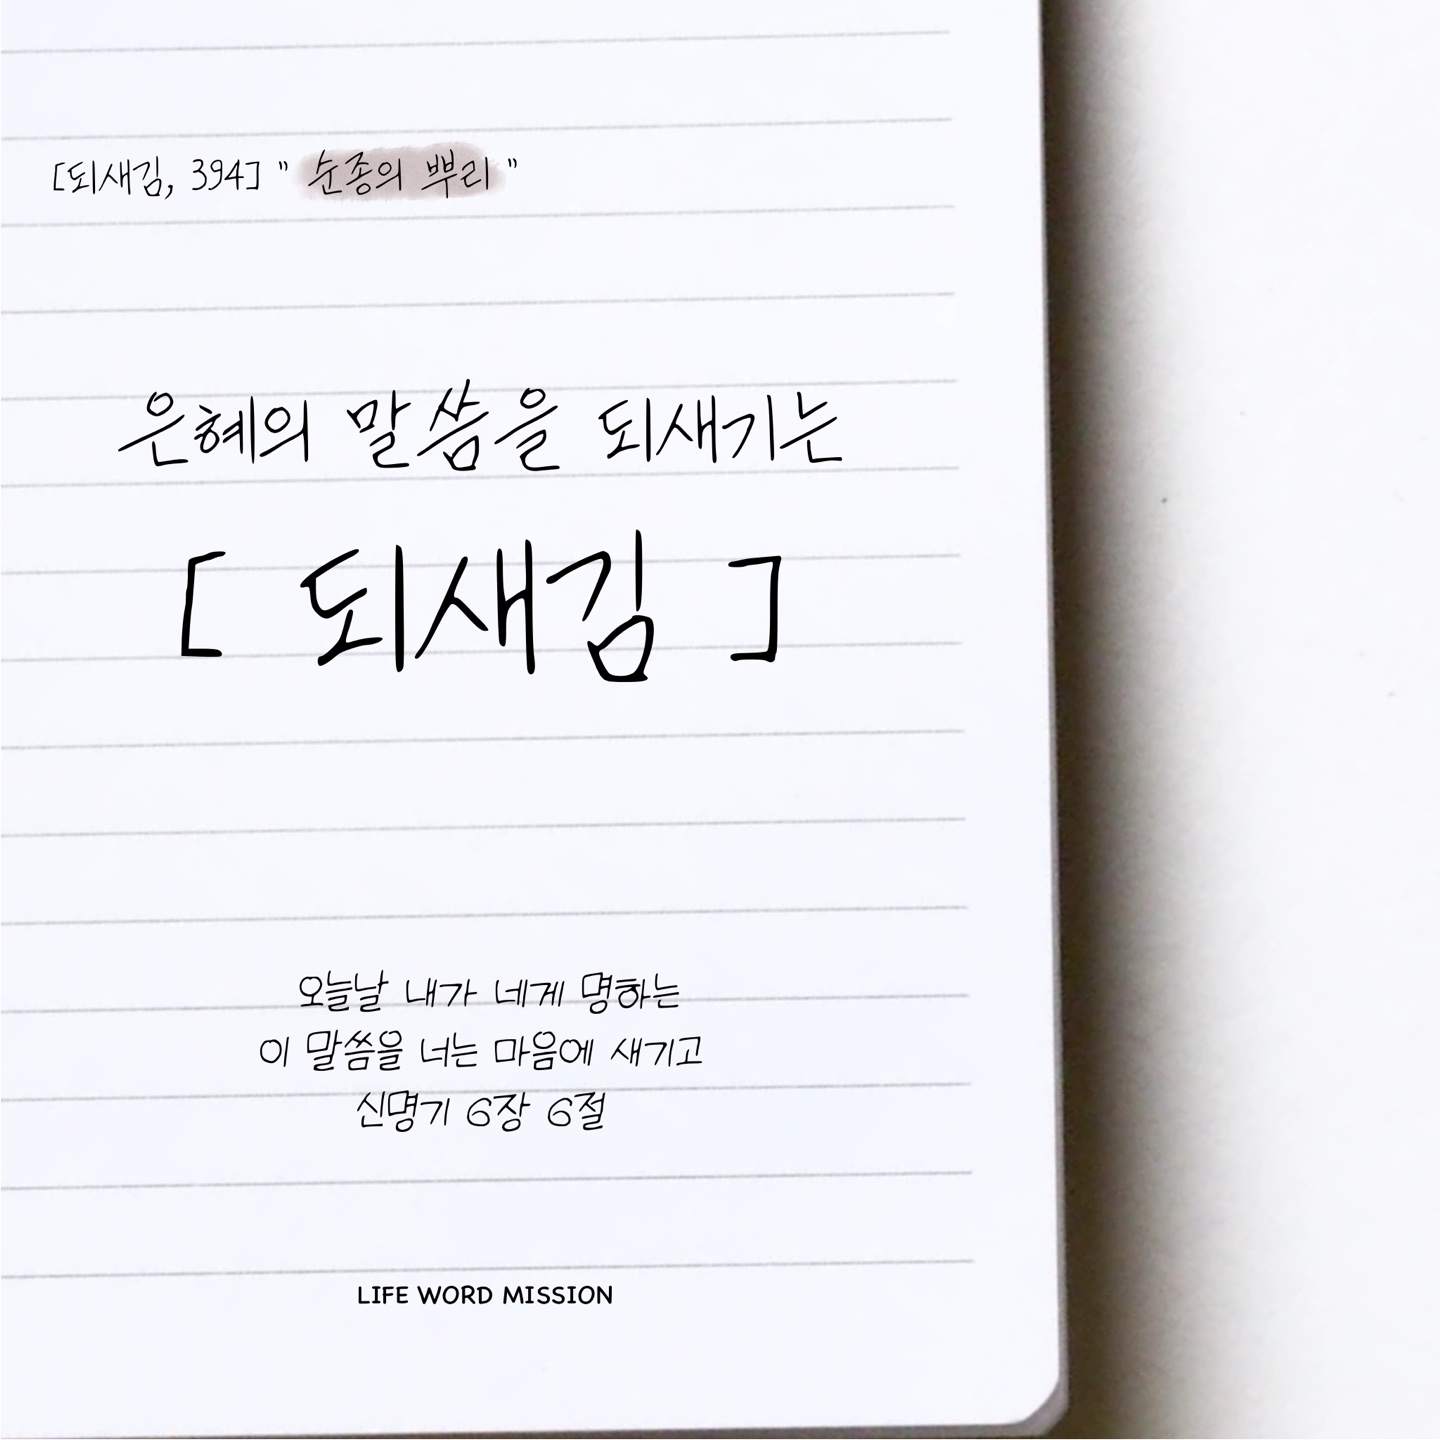 [되새김, 394] " 순종의 뿌리 "
은혜의 말씀을 되새기는
[ 되새김 ]
오늘날 내가 네게 명하는
이 말씀을 너는 마음에 새기고
신명기 6장 6절
LIFE WORD MISSION